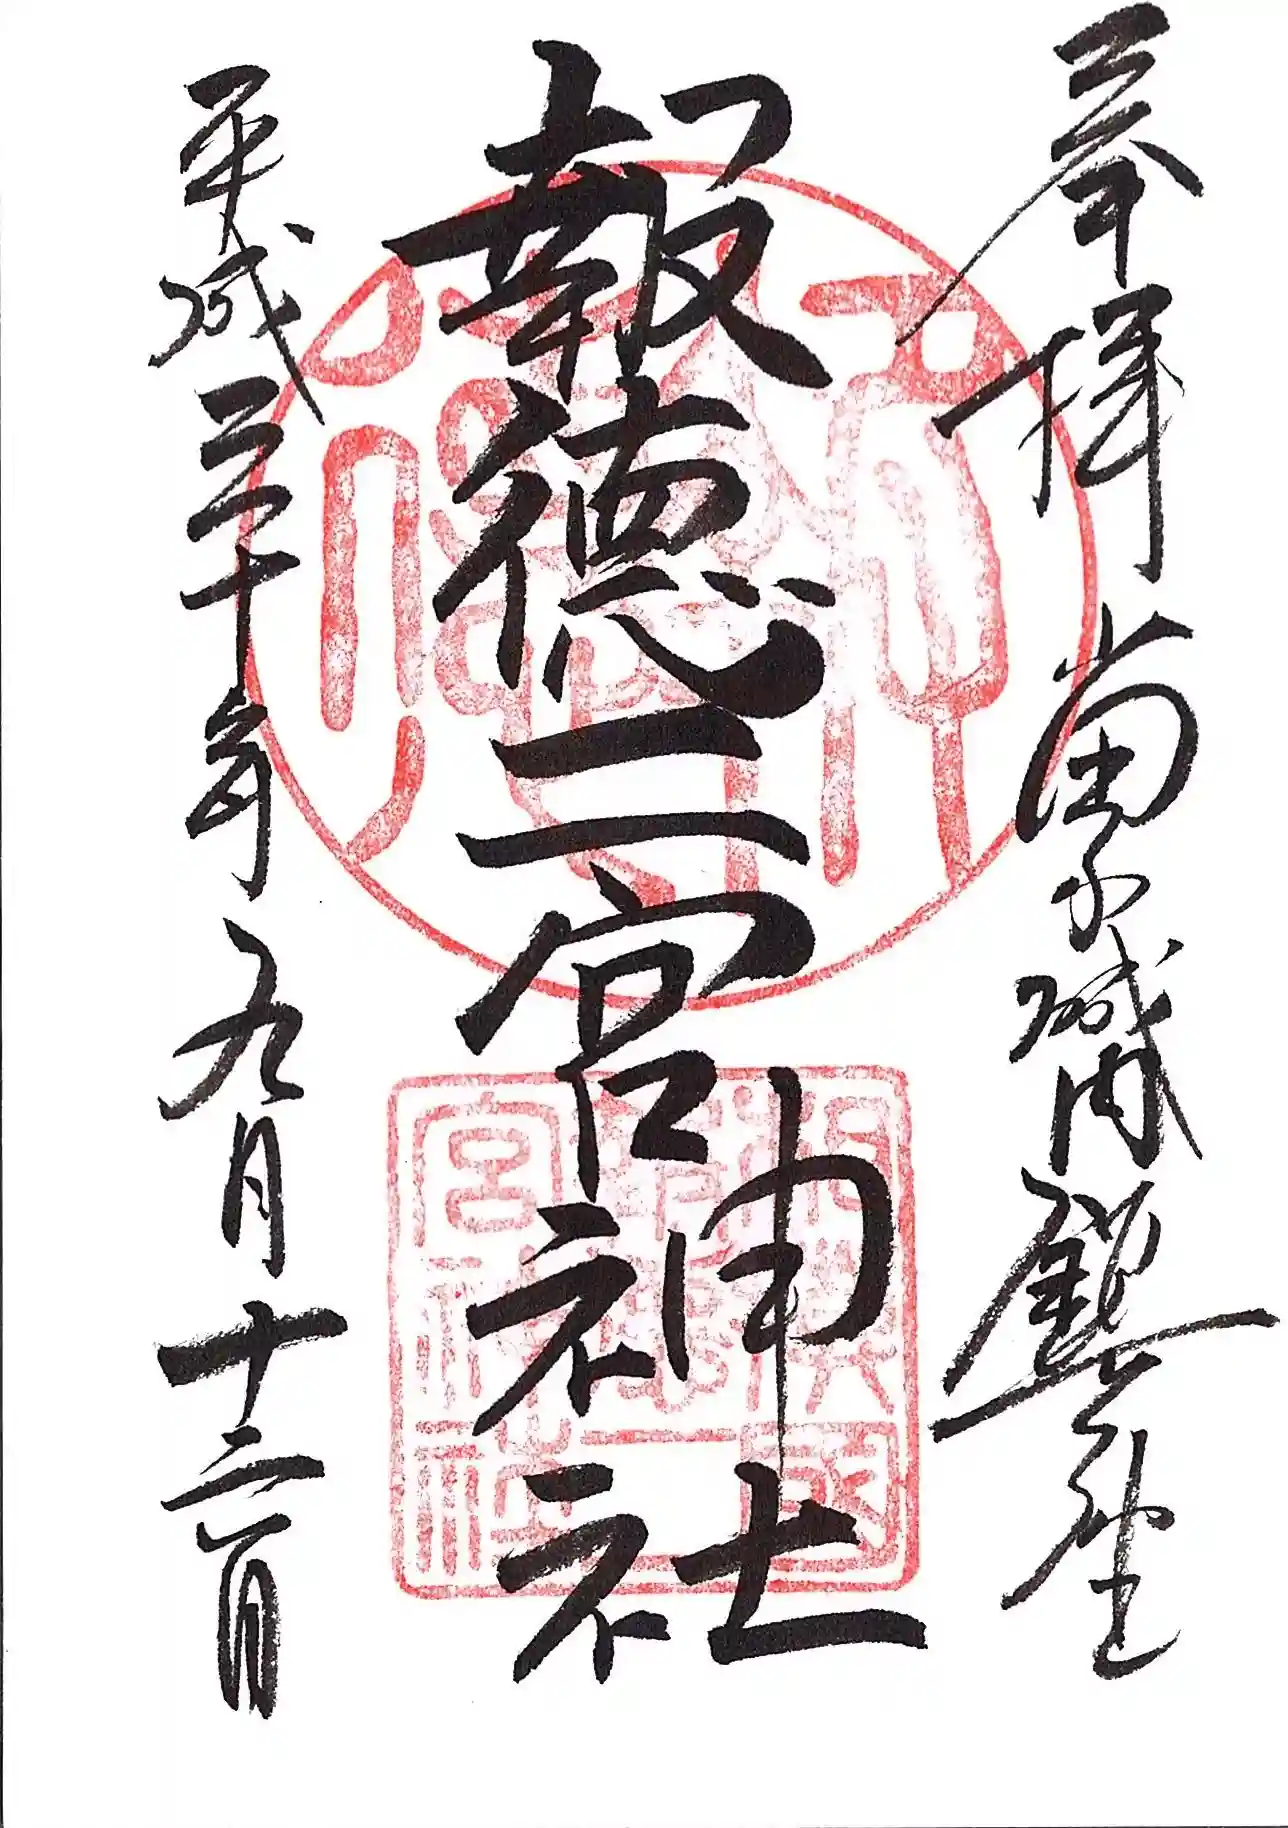 奉拝 小田原城内鎮座
報徳二宮神社
平成三十年九月十二日
相模國
報徳二
宮神社